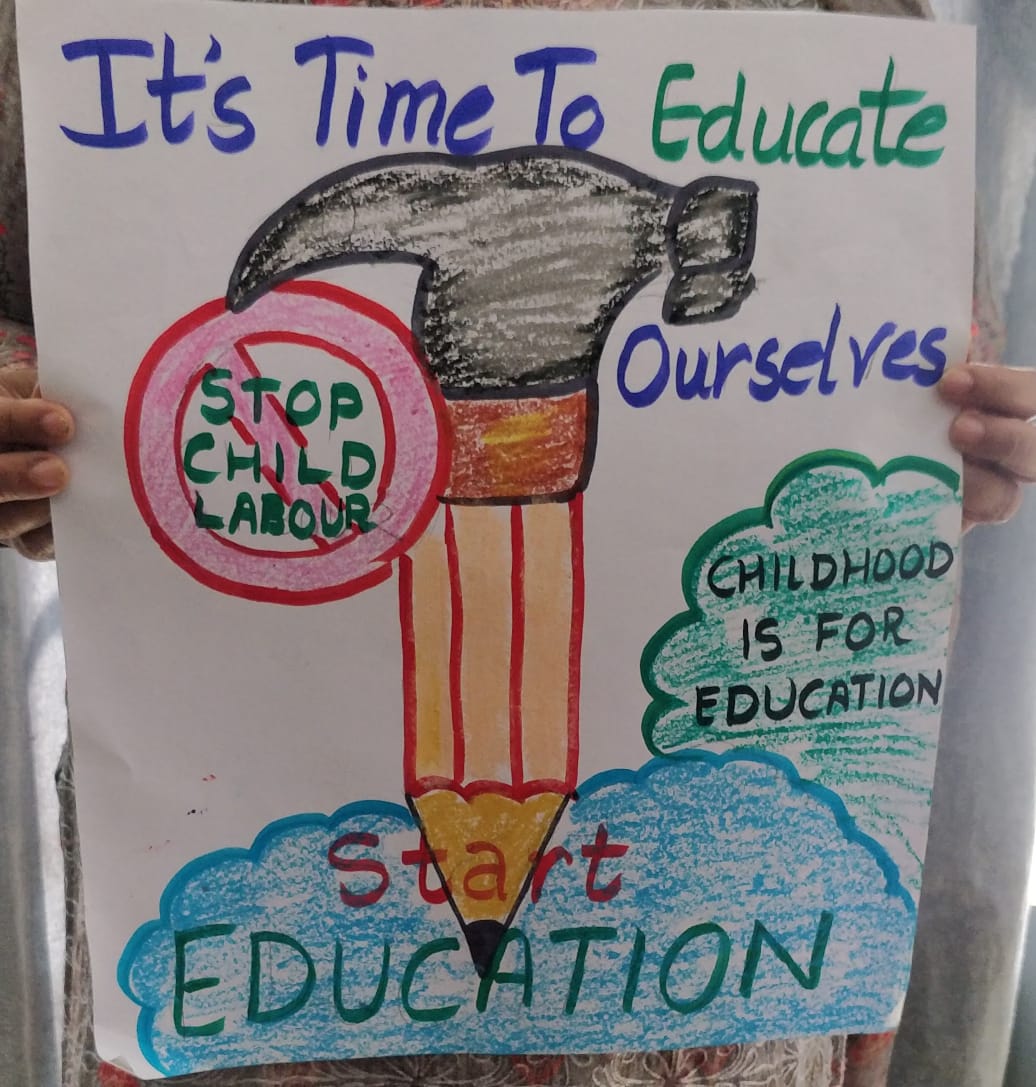 It's Time To Educate
Ourselves
STOP
CHILD
LABOUR
CHILDHOOD
IS FOR
EDUCATION
Start
EDUCATION